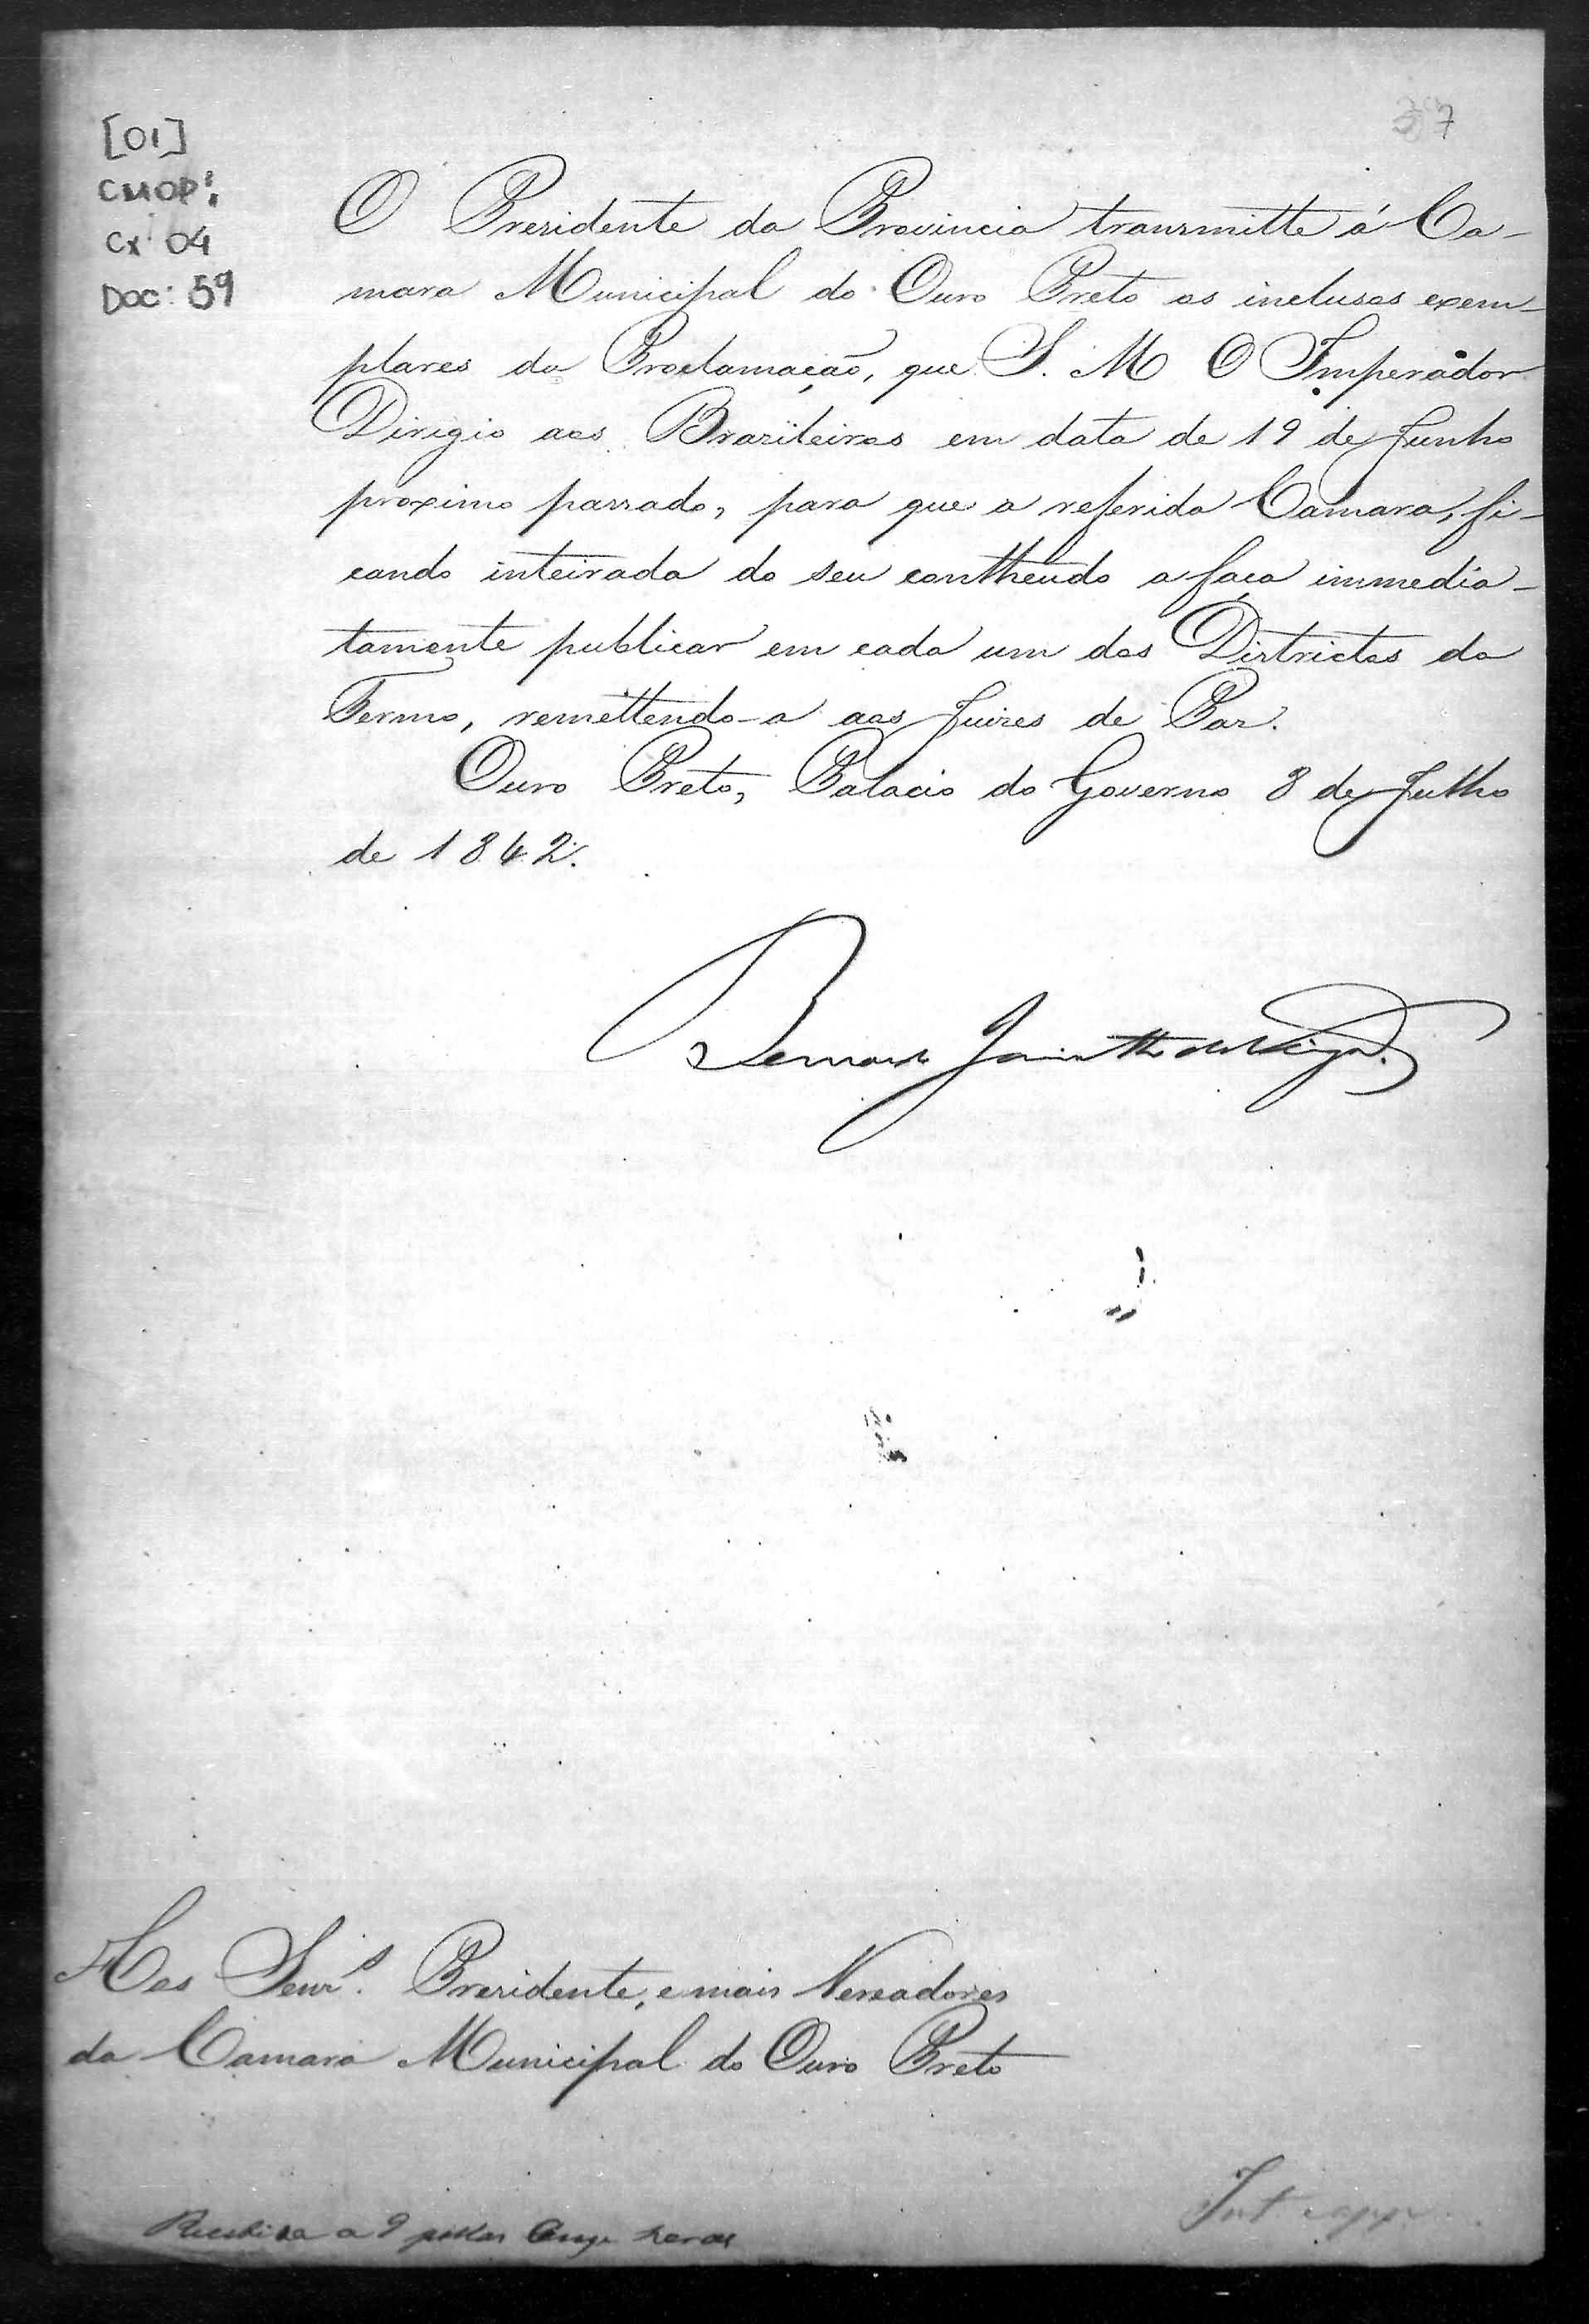 37
[01]
CMOP:
Cx: 04
Doc: 59
O Presidente da Provincia transmitte á Ca-
mara Municipal do Ouro Preto os inclusos exem-
plares da Proclamação, que S. M. O Imperador
Dirigio aos Brasileiros em data de 19 de Junho
proximo passado, para que a referida Camara, fi-
cando inteirada do seu contheudo a faça immedia-
tamente publicar em cada um dos Districtos do
Termo, remettendo-a aos Juizes de Paz.
Ouro Preto, Palacio do Governo 8 de Julho
de 1842.
Bernardo Jacintho da Veiga.
Aos Senrs. Presidente, e mais Vereadores
da Camara Municipal do Ouro Preto
Recebida a 9 pellas Onze horas